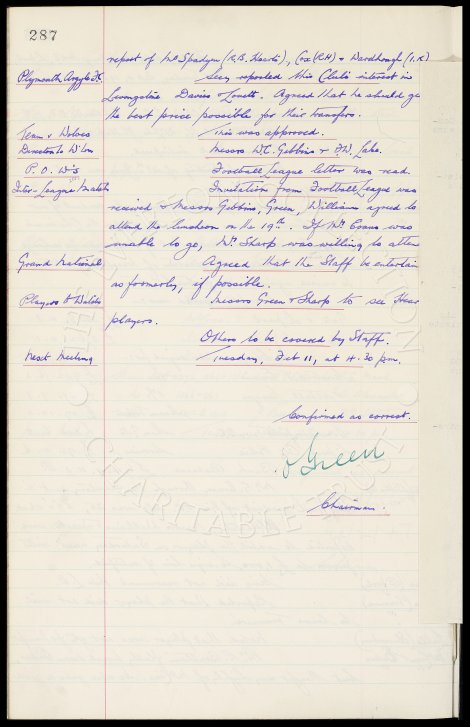 287
report of Mr Spadyn (R.B. Hearts), Cox (R.H) & Wardhaugh (I.R)
Plymouth Argyle FC
Secy reported this Club's interest in
Livingstone Davies & Lovett. Agreed that he should get
the best price possible for their transfers.
This was approved.
Team v Wolves
Directors to W'ton
Messrs W.C. Gibbins & F.W. Lake.
P. O. W's
Football League letter was read.
Inter-League Match
Invitation from Football League was
received & Messrs Gibbins, Green, Williams agreed to
attend the luncheon on the 19th. If Mr Evans was
unable to go, Mr Sharp was willing to atten
Grand National
Agreed that the Staff be entertain
as formerly, if possible.
Players to Watch
Messrs Green & Sharp to see Hear
players.
Others to be covered by Staff.
Next Meeting
Tuesday, Feb 11, at 4.30 pm.
Confirmed as correct.
Green
Chairman.
CHARITABLE